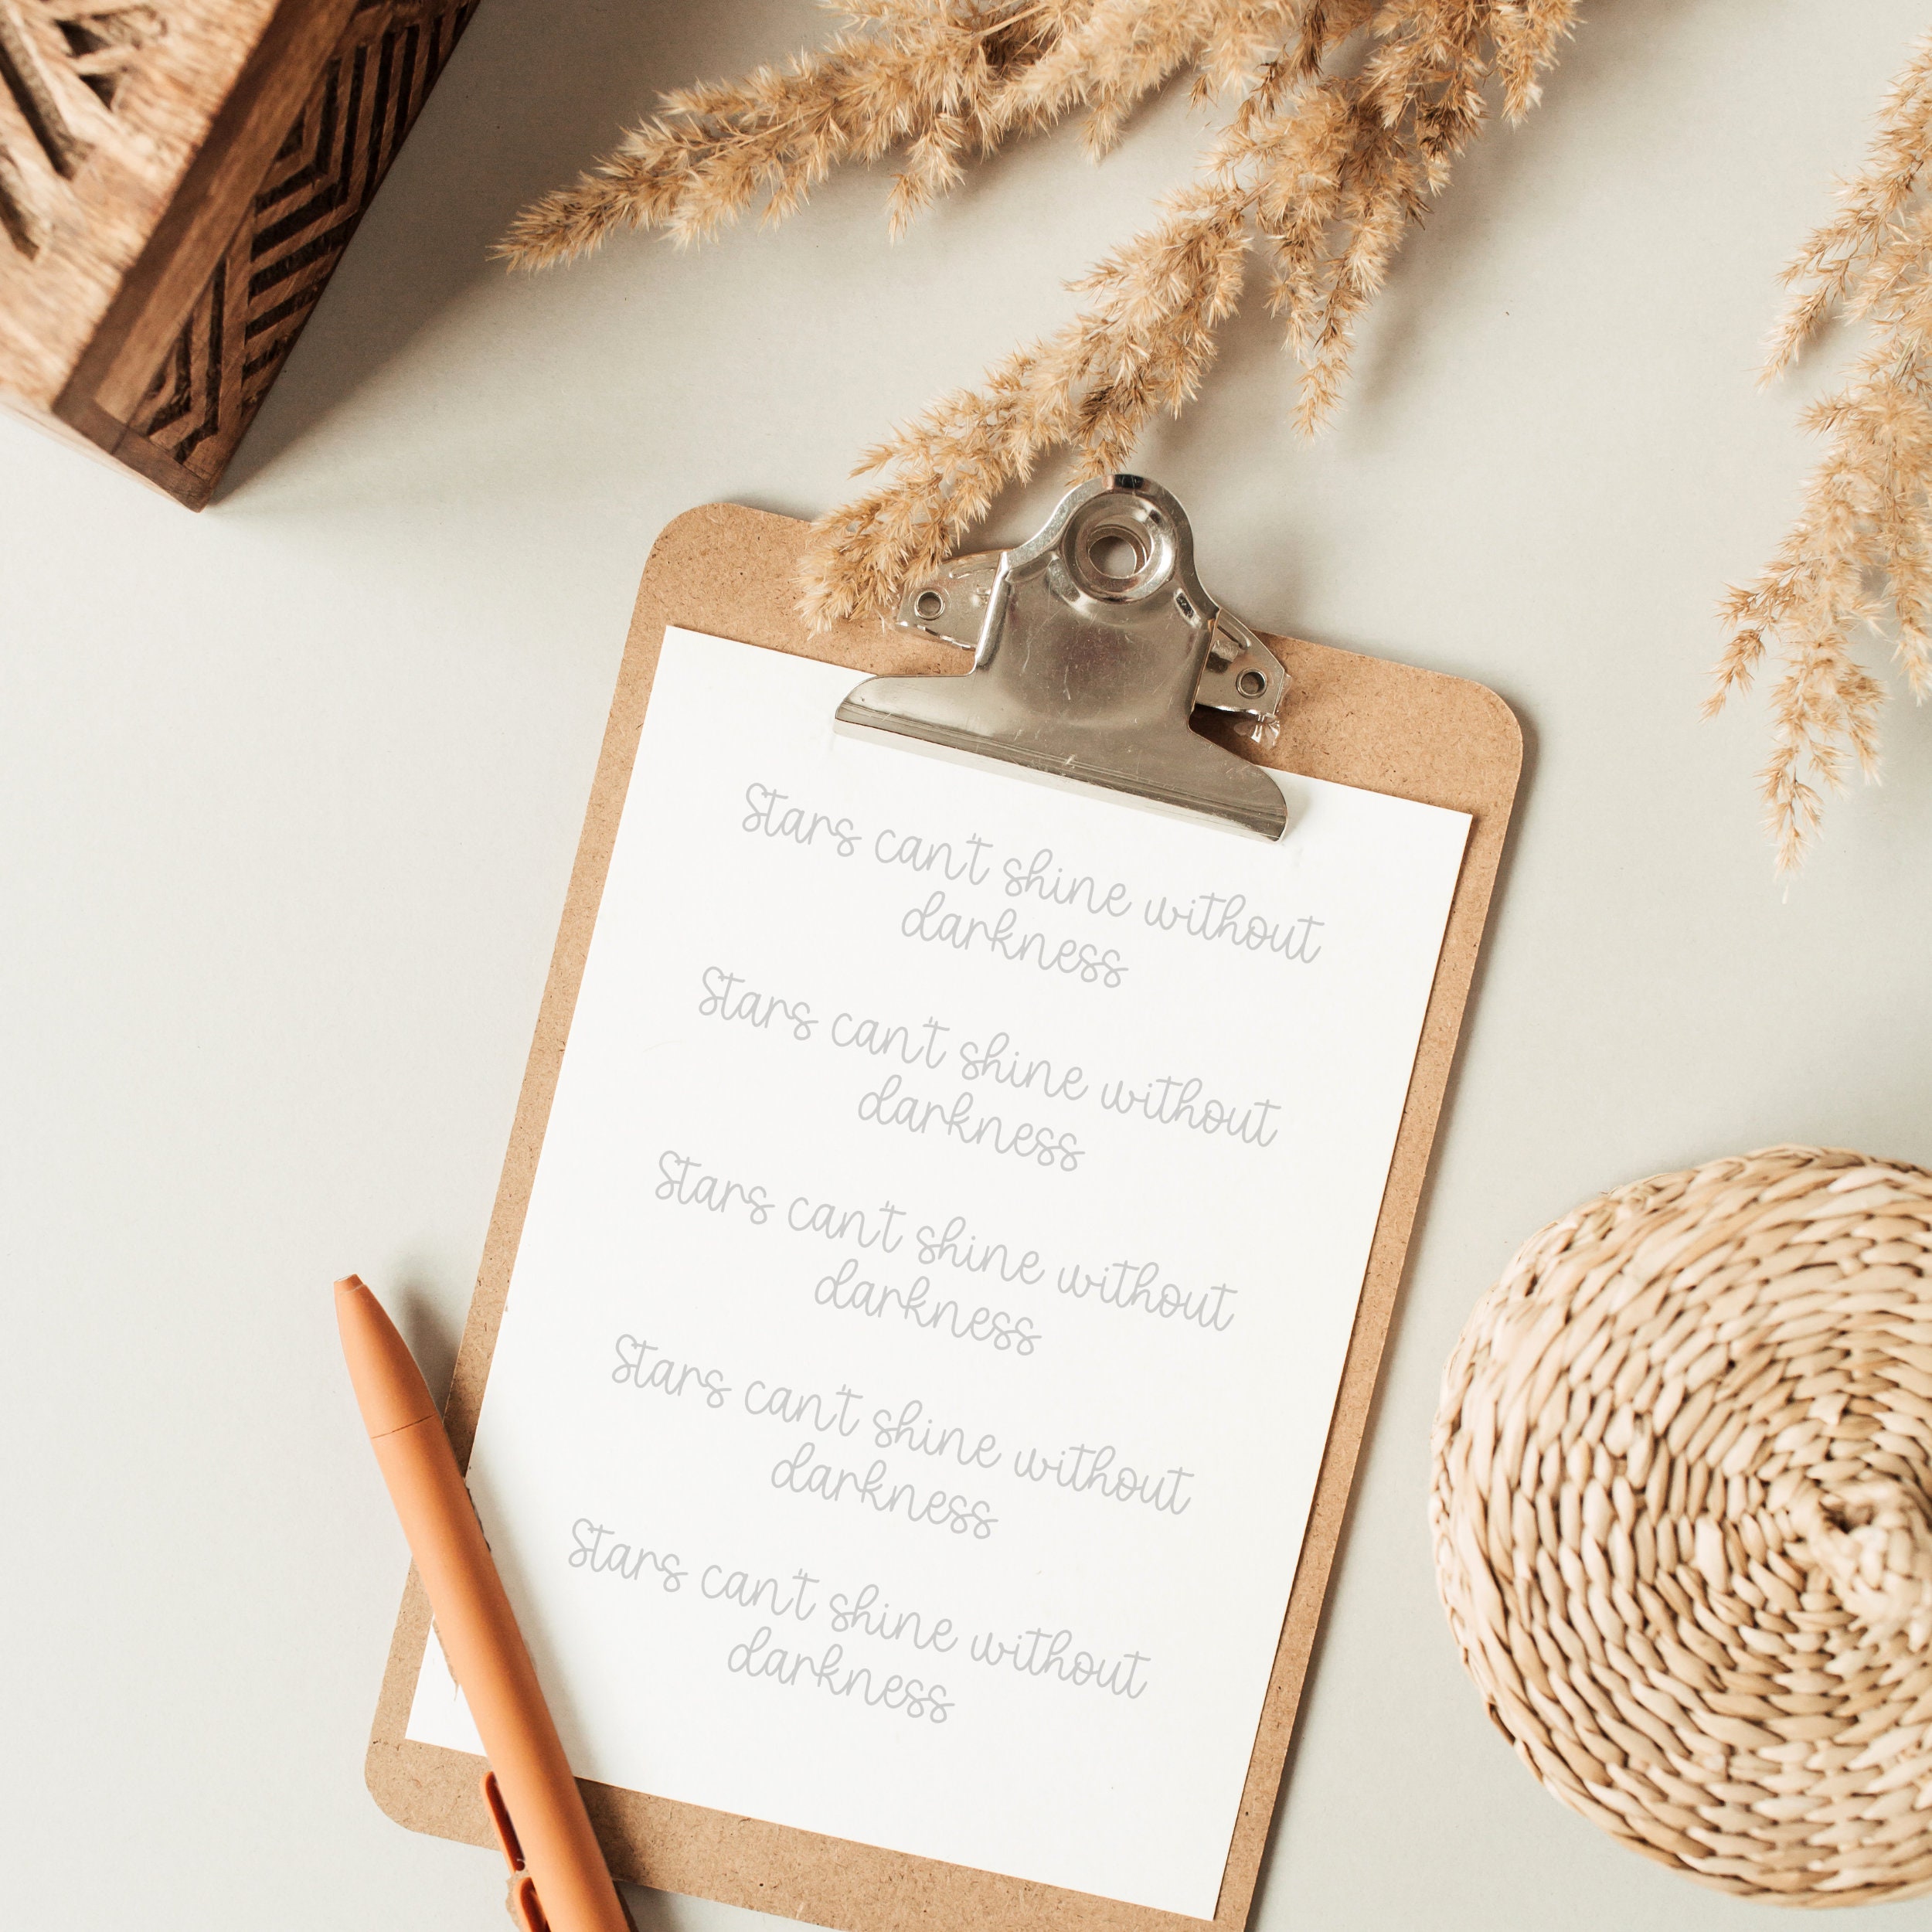 Stars can't shine without
darkness
Stars can't shine without
darkness
Stars can't shine without
darkness
Stars can't shine without
darkness
Stars can't shine without
darkness